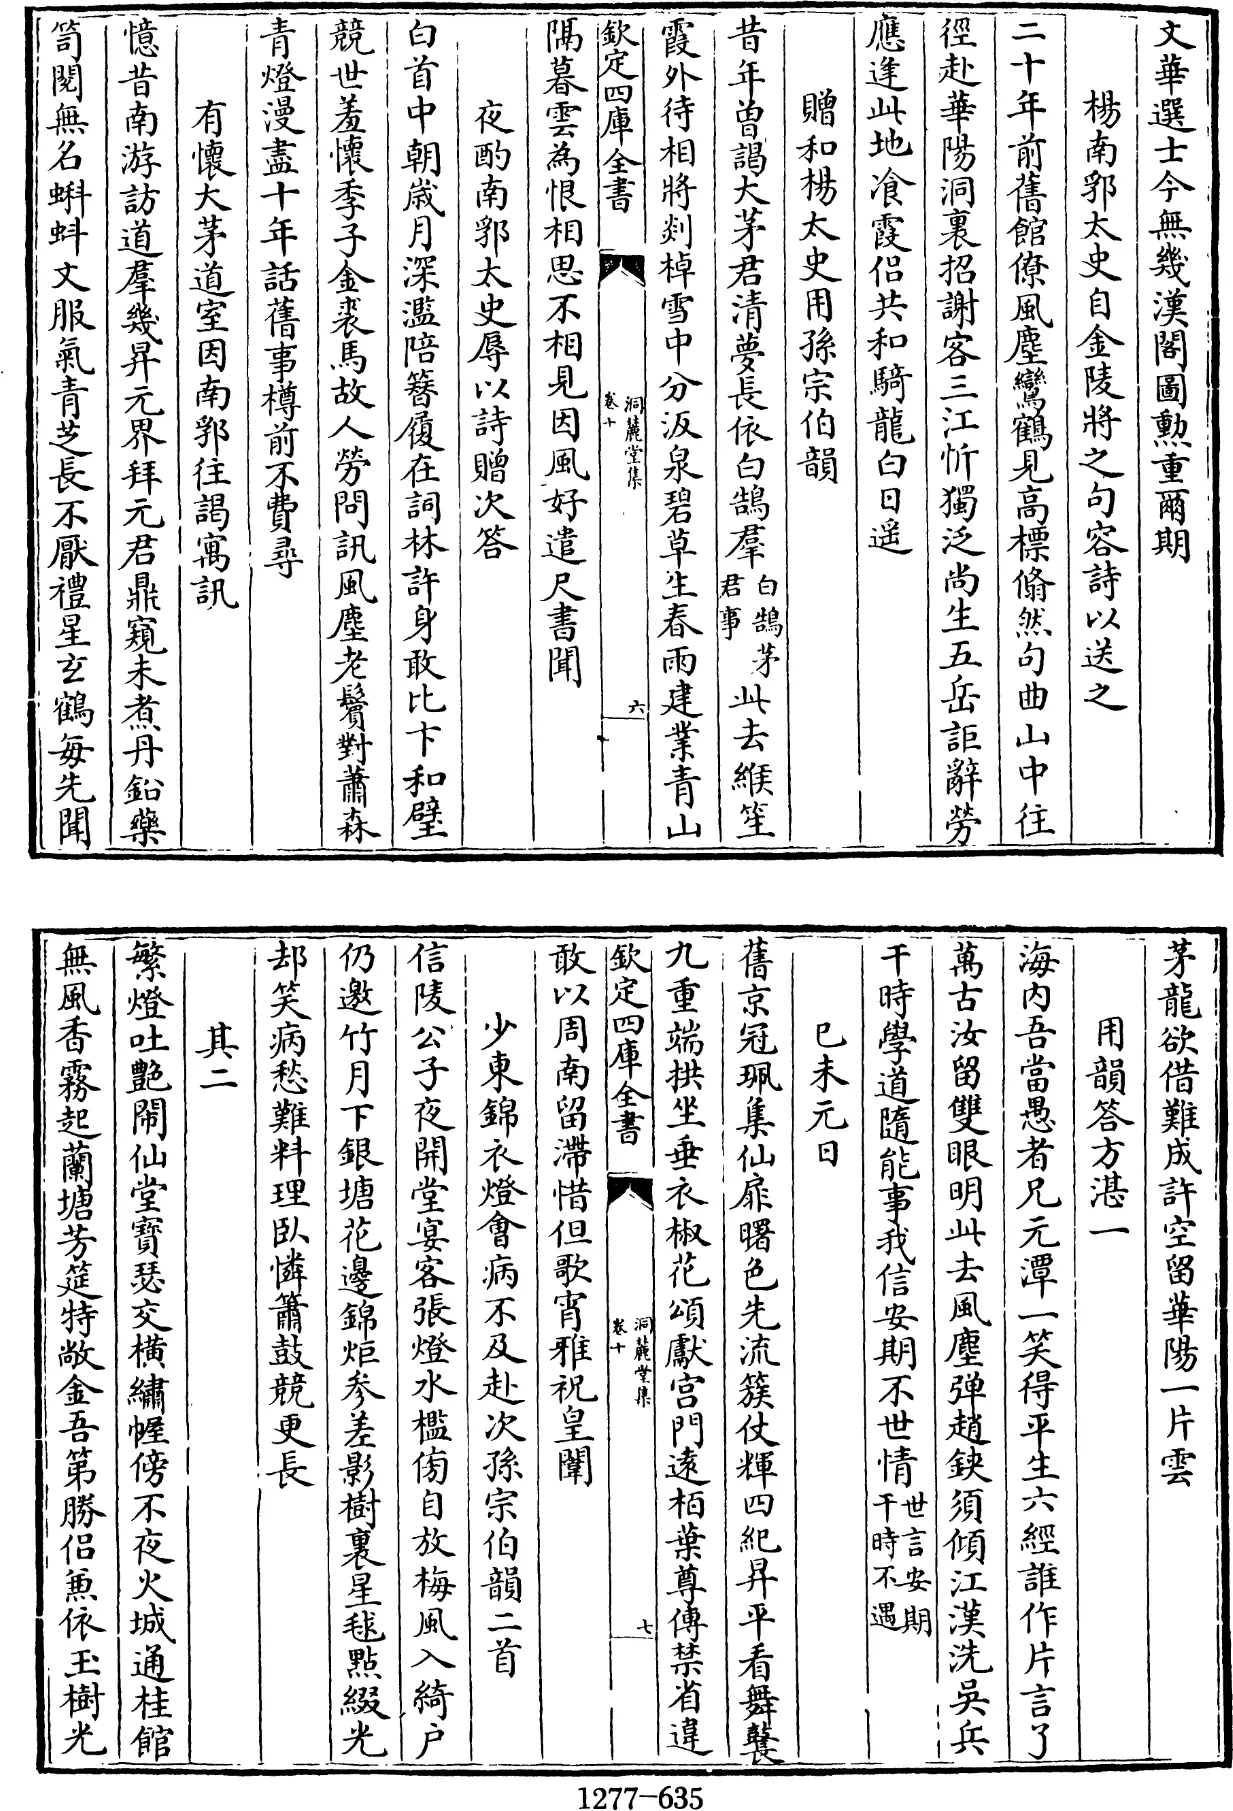 文華選士今無幾漢閣圖勲重爾期
楊南郭太史自金陵將之句容詩以送之
二十年前舊館僚風塵鸞鶴見高標翛然句曲山中往
徑赴華陽洞裏招謝客三江忻獨泛尚生五岳詎辭勞
應逢此地飡霞侣共和騎龍白日遥
贈和楊太史用孫宗伯韻
昔年曽謁大茅君清夢長依白鵠羣白鵠茅君事此去緱笙
霞外待相將剡棹雪中分汲泉碧草生春雨建業青山
欽定四庫全書
洞麓堂集
卷十
六
隔暮雲為恨相思不相見因風好遣尺書聞
夜酌南郭太史辱以詩贈次答
白首中朝歲月深濫陪簮履在詞林許身敢比卞和璧
競世羞懷季子金裘馬故人勞問訊風塵老鬢對蕭森
青燈漫盡十年話舊事樽前不費尋
有懷大茅道室因南郭往謁寓訊
憶昔南游訪道羣幾昇元界拜元君鼎窺未煮丹鉛藥
笥閱無名蝌蚪文服氣青芝長不厭禮星玄鶴每先聞
茅龍欲借難成許空留華陽一片雲
用韻答方湛一
海内吾當愚者兄元潭一笑得平生六經誰作片言了
萬古汝留雙眼明此去風塵弹趙鋏須傾江漢洗吳兵
干時學道隨能事我信安期不世情世言安期干時不遇
巳未元日
舊京冠珮集仙扉曙色先流簇仗輝四紀昇平看舞䙝
九重端拱坐垂衣椒花頌獻宫門遠栢葉尊傳禁省違
欽定四庫全書
洞麓堂集
卷十
七
敢以周南留滯惜但歌宵雅祝皇闈
少東錦衣燈會病不及赴次孫宗伯韻二首
信陵公子夜開堂宴客張燈水檻傍自放梅風入綺户
仍邀竹月下銀塘花邊錦炬参差影樹裏星毬點綴光
却笑病愁難料理臥憐簫鼓競更長
其二
繁燈吐艶閙仙堂寶瑟交横繡幄傍不夜火城通桂館
無風香霧起蘭塘芳筵特敞金吾第勝侣兼依玉樹光
1277-635